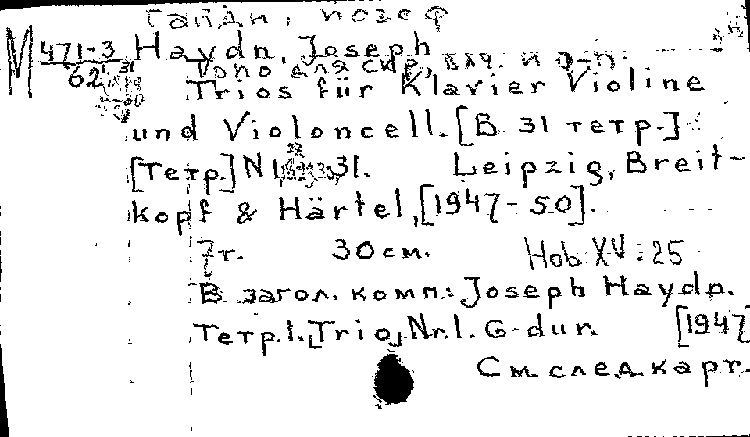 Гайдн, Йозеф
М 471-3/62
Haydn, Joseph
Трио для скр., влч. и ф-п.
Trios für Klavier Violine
und Violoncell. [В 31 тетр.]
[Тетр.] N 1, 31. Leipzig, Breit-
kopf & Härtel, [1947-50].
7 т. 30 см. Hob. XV: 25
В загол. комп.: Joseph Haydn.
Тетр. 1. [Trio] Nr. 1. G-dur. [1947
См. след. карт.